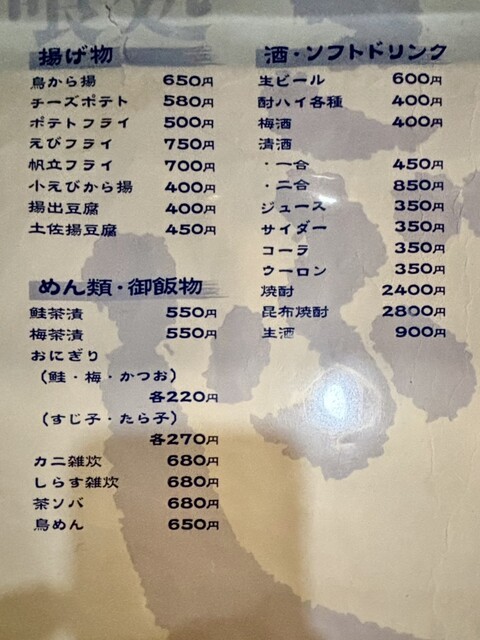 揚げ物
鳥から揚 650円
チーズポテト 580円
ポテトフライ 500円
えびフライ 750円
帆立フライ 700円
小えびから揚 400円
揚出豆腐 400円
土佐揚豆腐 450円
めん類・御飯物
鮭茶漬 550円
梅茶漬 550円
おにぎり
(鮭・梅・かつお)
各220円
(すじ子・たら子)
各270円
カニ雑炊 680円
しらす雑炊 680円
茶ソバ 680円
鳥めん 650円
酒・ソフトドリンク
生ビール 600円
酎ハイ各種 400円
梅酒 400円
清酒
・一合 450円
・二合 850円
ジュース 350円
サイダー 350円
コーラ 350円
ウーロン 350円
焼酎 2400円
昆布焼酎 2800円
生酒 900円